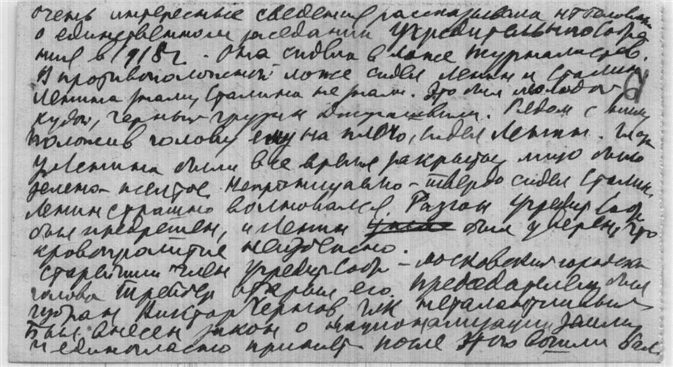 очень интересные сведения рассказывала
о единственном заседании Учредительного Собра
ния в 1918 г. Она сидела в ложе журналистов.
В противоположной ложе сидел Ленин и Сталин
Ленина знали, Сталина не знали. Это был молодой
худой, черный грузин Джугашвили. Рядом с ним,
положив голову ему на плечо, сидел Ленин. Глаза
у Ленина были все время закрыты, лицо было
зелено-желтое. Непроницаемо-твердо сидел Сталин.
Ленин страшно волновался. Разгон Учредит Собр
был предрешен, и Ленин был уверен, что
кровопролитие неизбежно.
Старейший член Учредит Собр – московский городской
голова открыл его, председателем был
избран Виктор Чернов
Был внесен закон о национализации земли
и единогласно принят после этого вошли